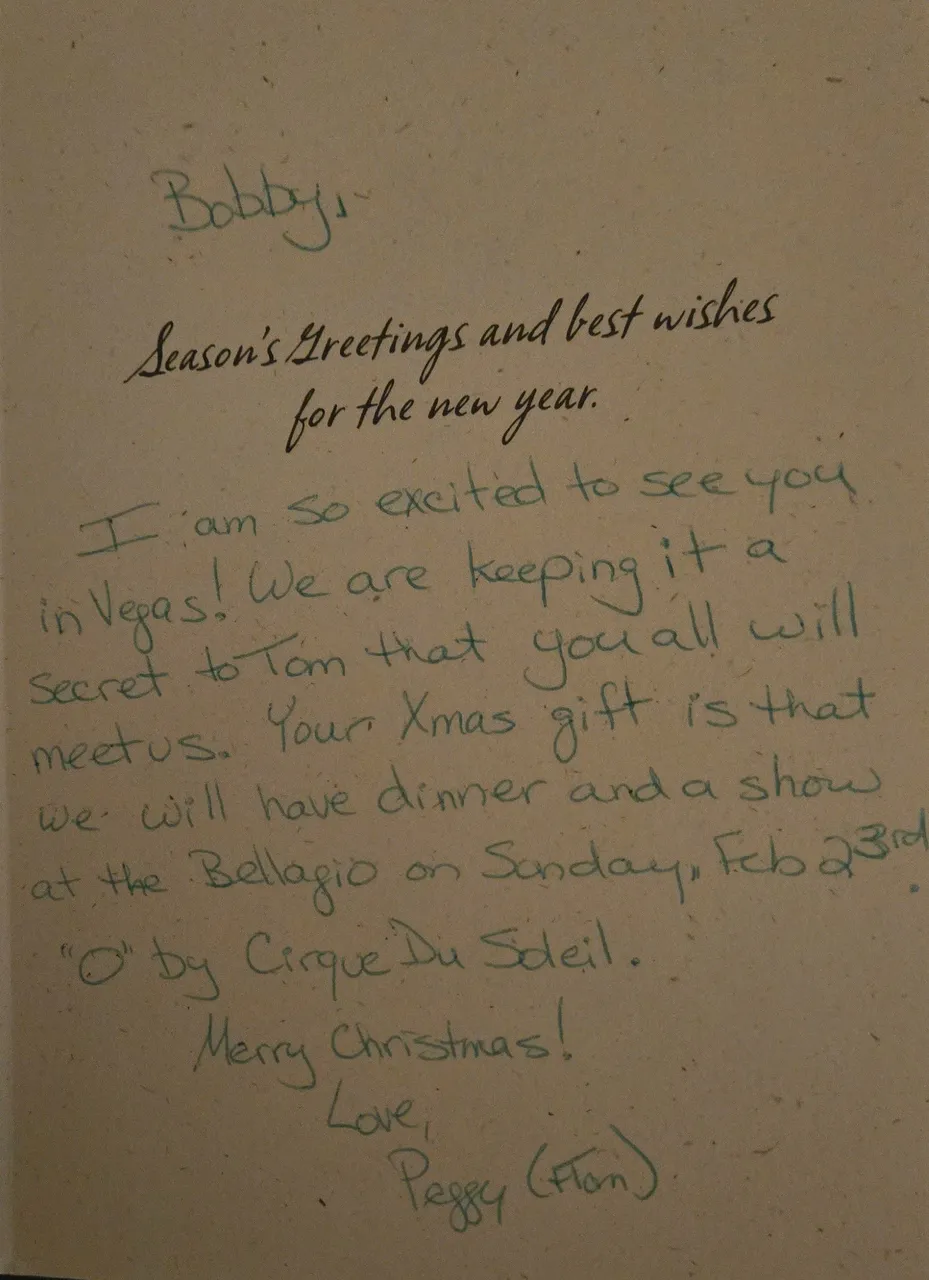 Bobby,
Season's Greetings and best wishes
for the new year.
I am so excited to see you
in Vegas! We are keeping it a
secret to Tom that you all will
meet us. Your Xmas gift is that
we will have dinner and a show
at the Bellagio on Sunday, Feb 23rd.
"O" by Cirque Du Soleil.
Merry Christmas!
Love,
Peggy (+Tom)